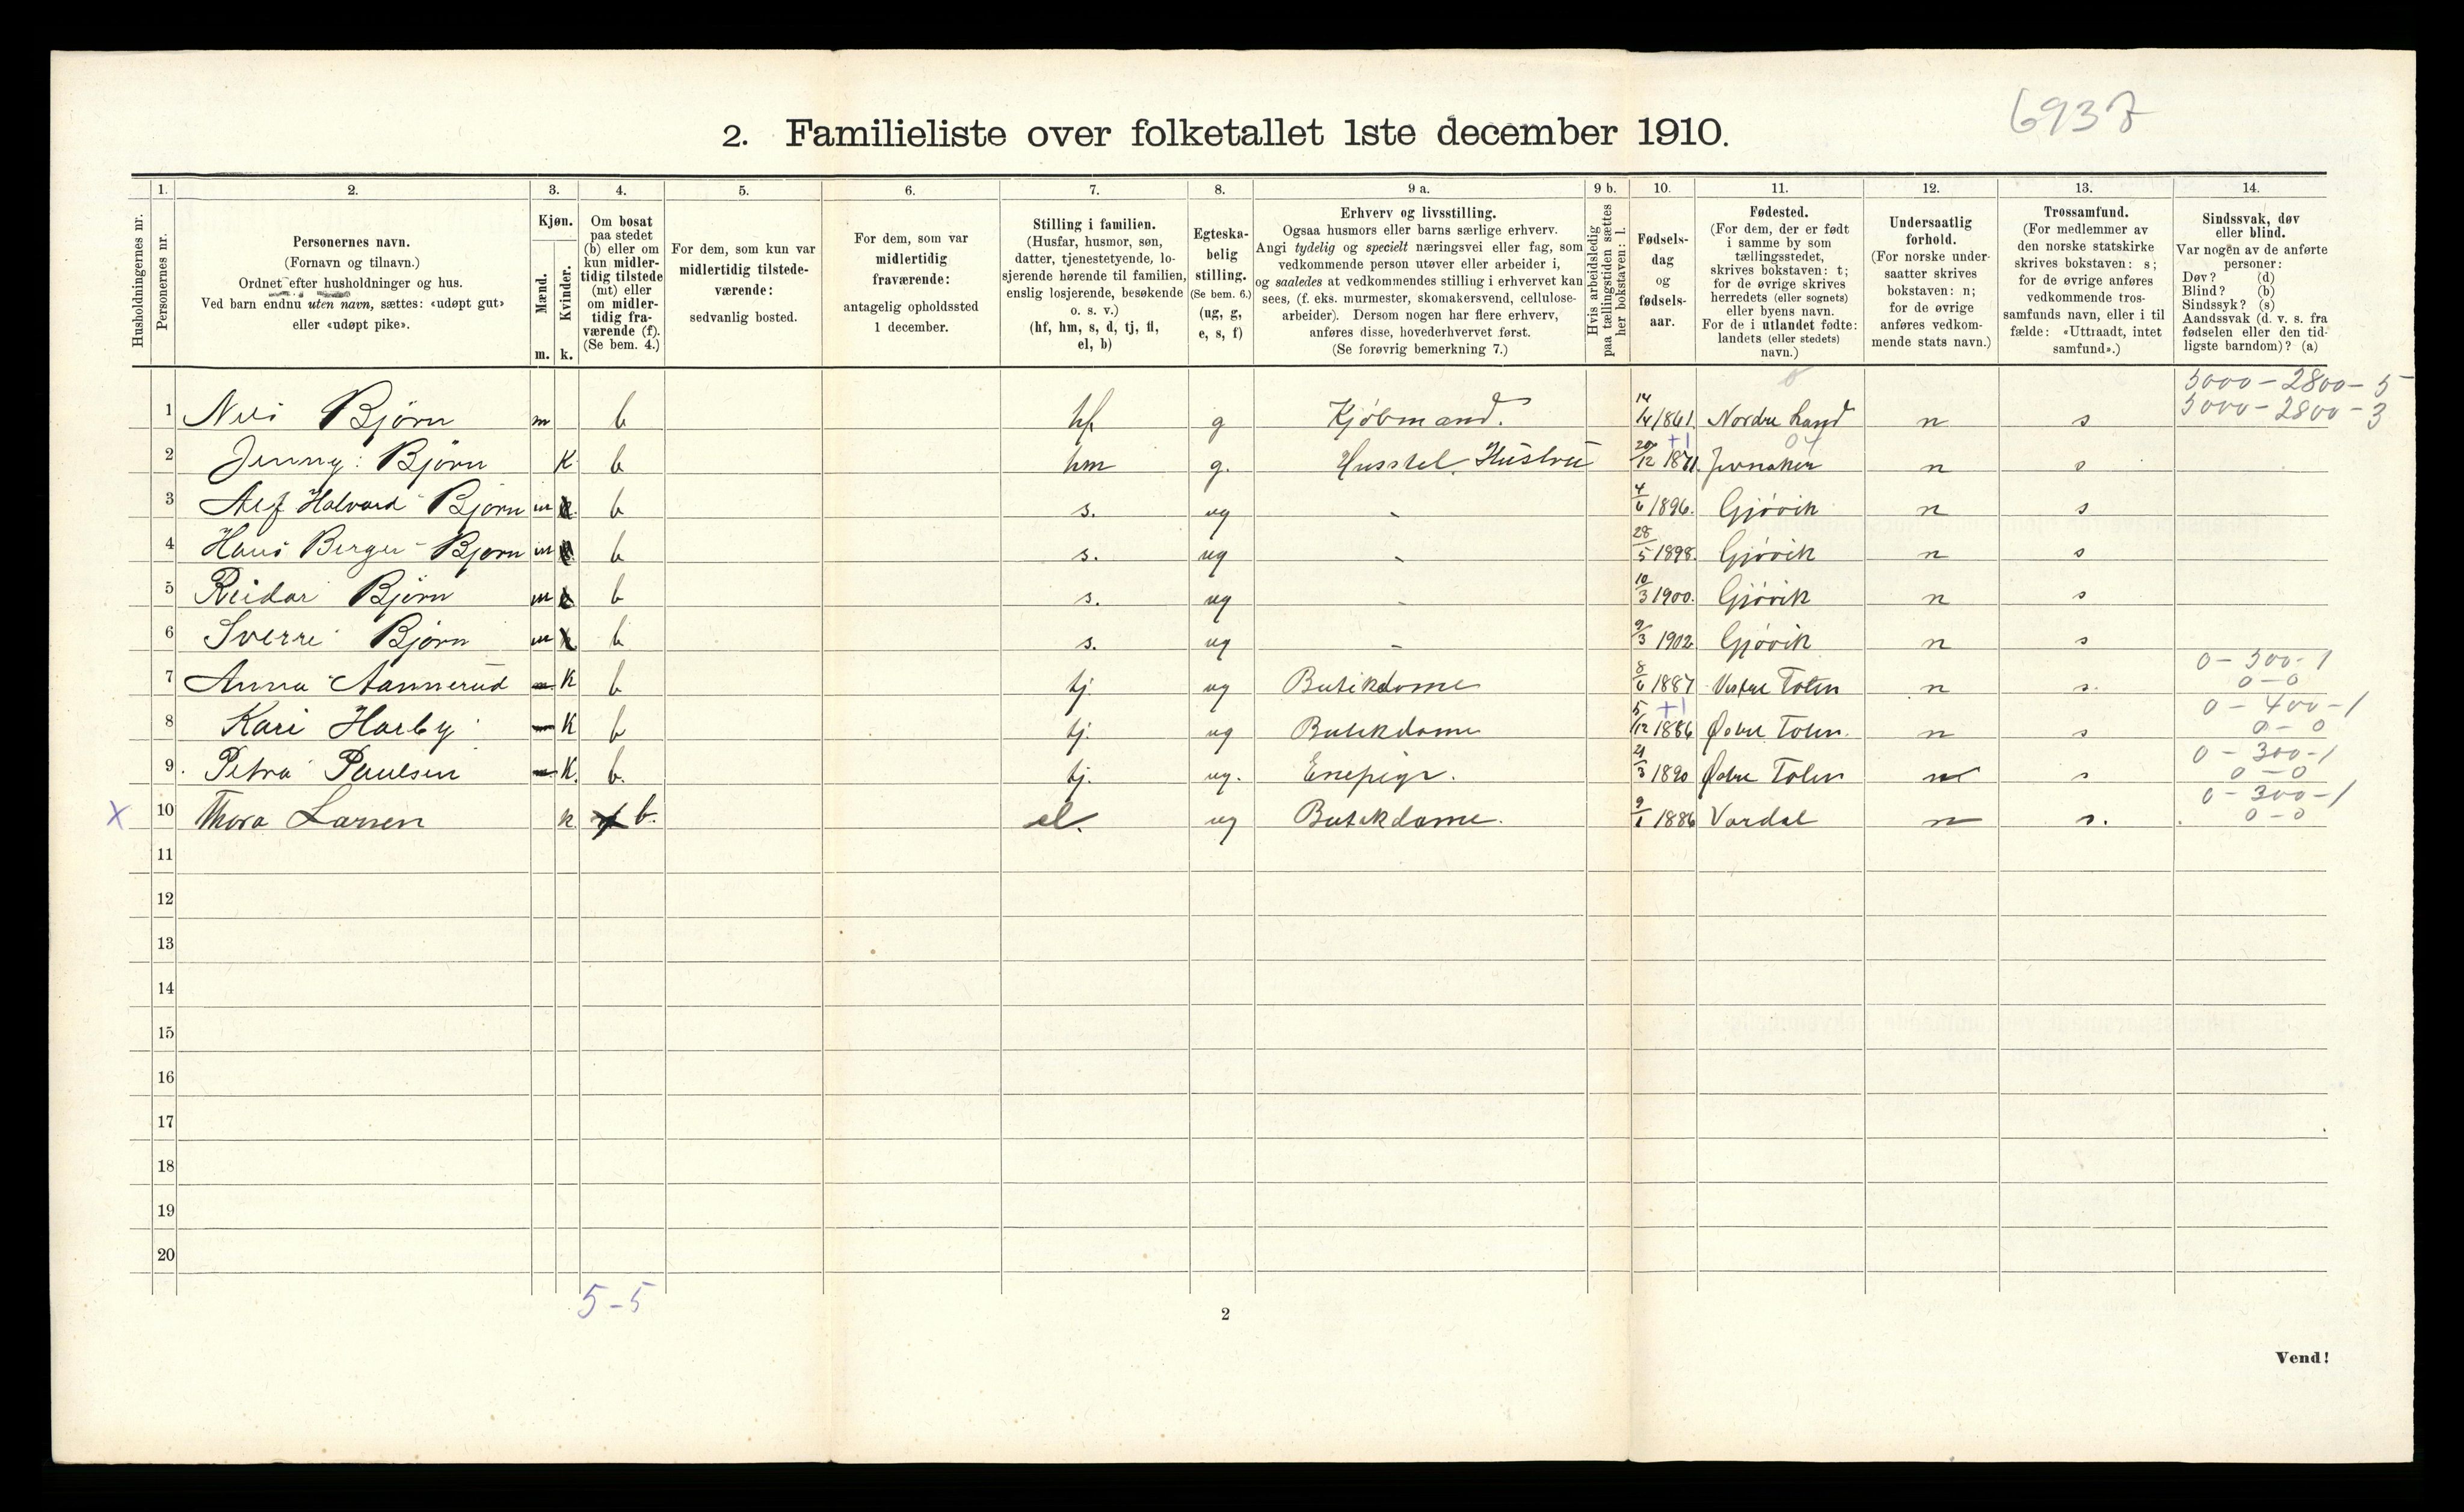 6937
2. Familieliste over folketallet 1ste december 1910.
Husholdningernes nr.
1. Personernes nr.
2. Personernes navn. (Fornavn og tilnavn.) Ordnet efter husholdninger og hus. Ved barn endnu uten navn, sættes: «udøpt gut» eller «udøpt pike».
3. Kjøn. Mænd. m. Kvinder. k.
4. Om bosat paa stedet (b) eller om kun midlertidig tilstede (mt) eller om midlertidig fraværende (f). (Se bem. 4.)
5. For dem, som kun var midlertidig tilstedeværende: sedvanlig bosted.
6. For dem, som var midlertidig fraværende: antagelig opholdssted 1 december.
7. Stilling i familien. (Husfar, husmor, søn, datter, tjenestetyende, losjerende hørende til familien, enslig losjerende, besøkende o. s. v.) (hf, hm, s, d, tj, fl, el, b)
8. Egteskabelig stilling. (Se bem. 6.) (ug, g, e, s, f)
9 a. Erhverv og livsstilling. Ogsaa husmors eller barns særlige erhverv. Angi tydelig og specielt næringsvei eller fag, som vedkommende person utøver eller arbeider i, og saaledes at vedkommendes stilling i erhvervet kan sees, (f. eks. murmester, skomakersvend, cellulosearbeider). Dersom nogen har flere erhverv, anføres disse, hovederhvervet først. (Se forøvrig bemerkning 7.)
9 b. Hvis arbeidsledig paa tællingstiden sættes her bokstaven: l.
10. Fødselsdag og fødselsaar.
11. Fødested. (For dem, der er født i samme by som tællingsstedet, skrives bokstaven: t; for de øvrige skrives herredets (eller sognets) eller byens navn. For de i utlandet fødte: landets (eller stedets) navn.)
12. Undersaatlig forhold. (For norske undersaatter skrives bokstaven: n; for de øvrige anføres vedkommende stats navn.)
13. Trossamfund. (For medlemmer av den norske statskirke skrives bokstaven: s; for de øvrige anføres vedkommende trossamfunds navn, eller i tilfælde: «Uttraadt, intet samfund».)
14. Sindssvak, døv eller blind. Var nogen av de anførte personer: Døv? (d) Blind? (b) Sindssyk? (s) Aandssvak (d. v. s. fra fødselen eller den tidligste barndom)? (a)
5000 - 2800 - 5
1 Nils Bjørn m b hf g Kjøbmand. 14/4 1861 Nordre Land n s 5000 - 2800 - 3
2 Jenny Bjørn K b hm g. Husstel. Hustru 20/12 1871. +1 Jevnaker 04 n s
3 Alf Halvard Bjørn m b s. ug - 4/6 1896. Gjøvik n s
4 Hans Berger Bjørn m b s. ug - 28/5 1898. Gjøvik n s
5 Reidar Bjørn m b s. ug - 10/3 1900. Gjøvik n s
6 Sverre Bjørn m b s. ug - 9/3 1902 Gjøvik n s
0 - 300 - 1
7 Anna Aannerud K b tj ug Butikdame 8/6 1887 Vestre Toten n s. 0 - 0
0 - 400 - 1
8 Kari Harby K b tj. ug Butikdame 5/12 1886 +1 Østre Toten. n s 0 - 0
0 - 300 - 1
9. Petra Paulsen K. b. tj. ug. Enepige. 21/3 1890 Østre Toten n s 0 - 0
0 - 300 - 1
x 10 Thora Larsen k b. el. ug Butikdame. 9/1 1886 Vardal n s. 0 - 0
11
12
13
14
15
16
17
18
19
20
5 - 5
2
Vend!